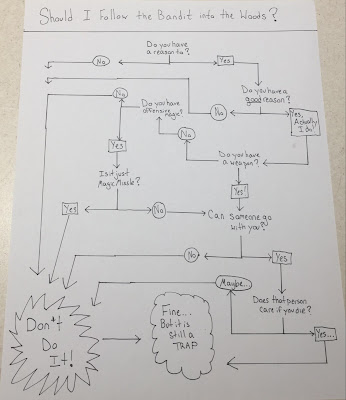 Should I Follow the Bandit into the Woods?
Do you have
a reason to?
No
Yes
Do you have a
good reason?
No
Yes,
Actually
I do
Do you have
offensive
magic?
No
No
Yes
Do you have
a weapon?
Is it just
Magic Missle?
Yes!
Yes
No
Can someone go
with you?
No
Yes
Maybe...
Does that person
care if you die?
Yes...
Don't
Do
It!
Fine...
But it is
still a
TRAP